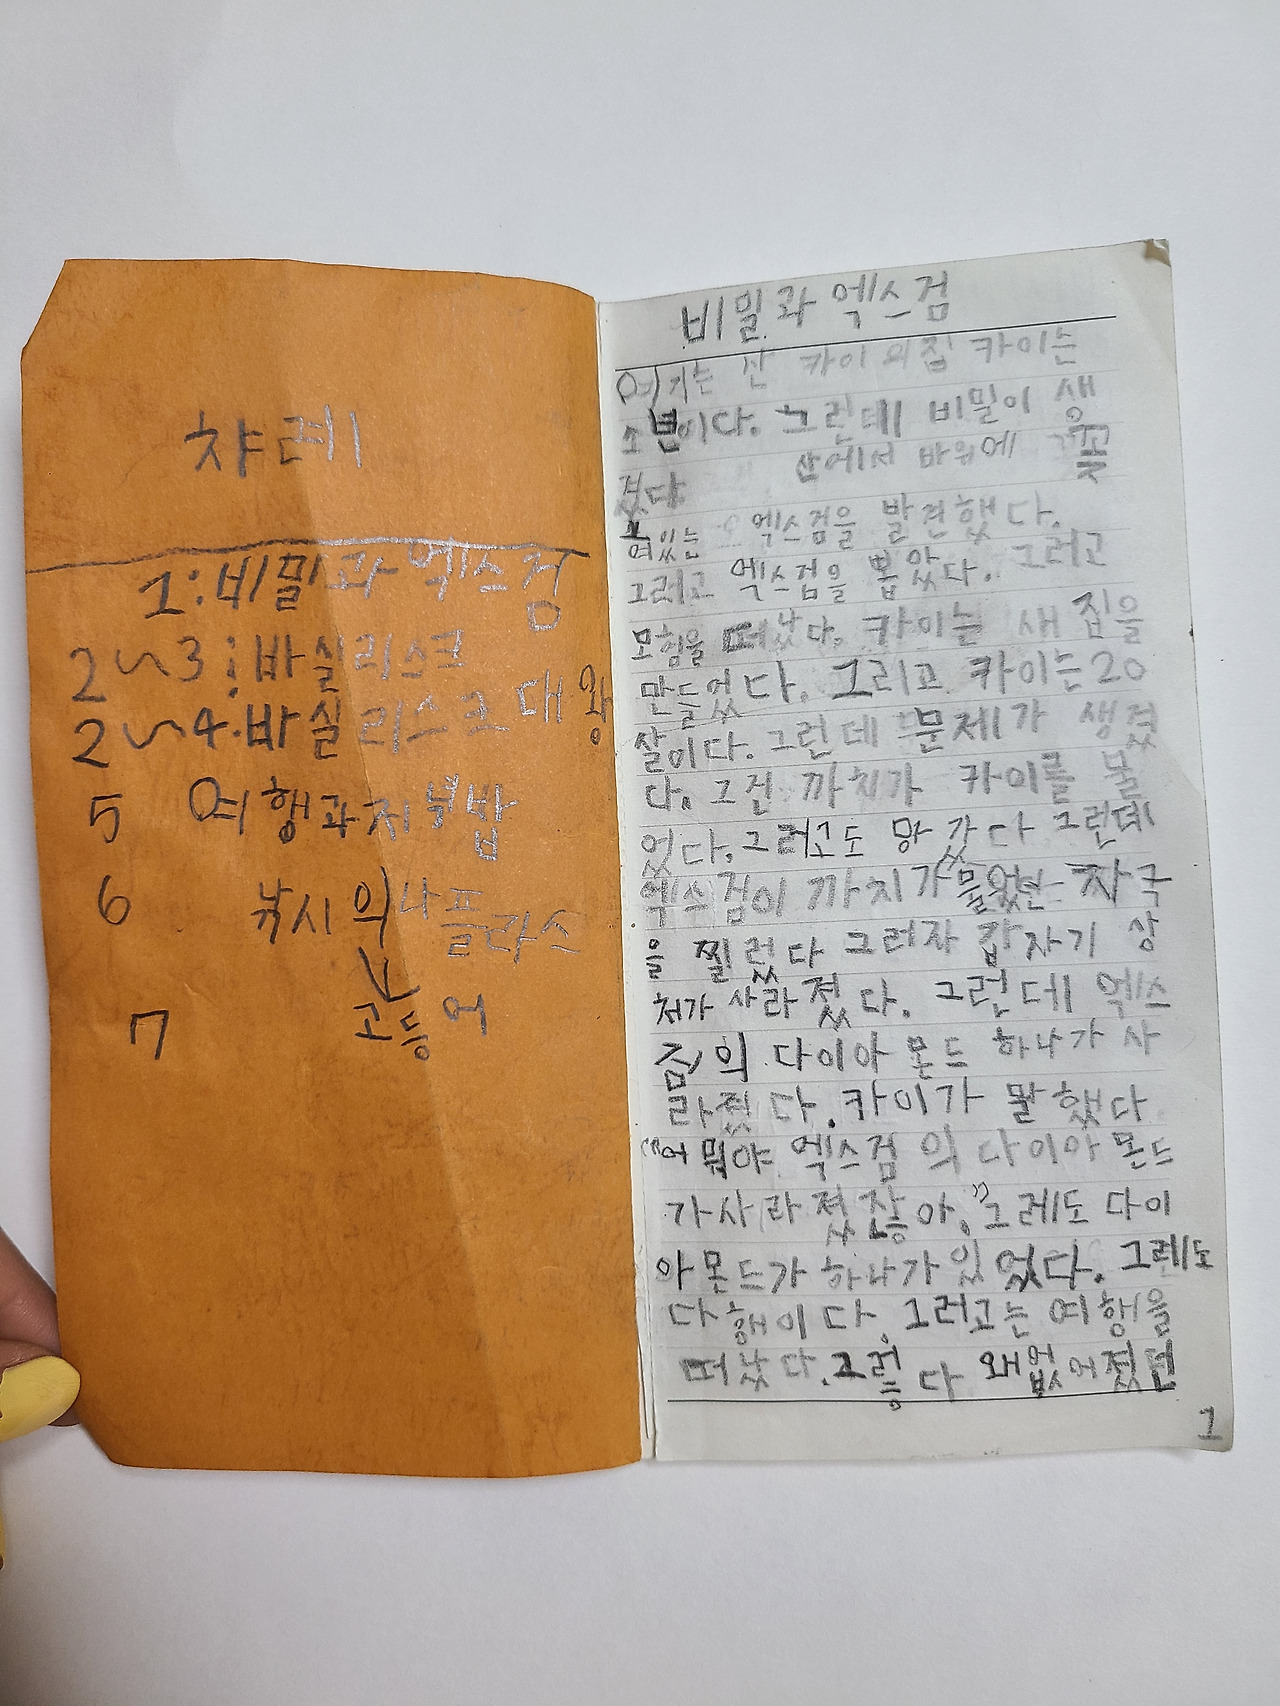 차례
1:비밀과 엑스검
2~3:바실리스크
2~4.바실리스크 대왕
5 여행과 지
6 낚시의 나플라스
고등어
7
비밀과 엑스검
여기는 산 카이의 집 카이는
소년이다. 그런데 비밀이 생
겼다 산에서 바위에 꽂
여있는 엑스검을 발견했다.
그리고 엑스검을 뽑았다. 그러고
모험을 떠났다. 카이는 새 집을
만들었다. 그리고 카이는 20
살이다. 그런데 문제가 생겼
다. 그건 까치가 카이를 물
었다. 그러고도 망갔다 그런데
엑스검이 까치가 물었던 자국
을 찔렀다 그러자 갑자기 상
처가 사라졌다. 그런데 엑스
검의 다이아몬드 하나가 사
라졌다. 카이가 말했다
"어 뭐야 엑스검의 다이아몬드
가 사라졌잖아." 그레도 다이
아몬드가 하나가 있었다. 그레도
다행이다. 그러고는 여행을
떠났다. 그렇다 왜 없어졌던
1